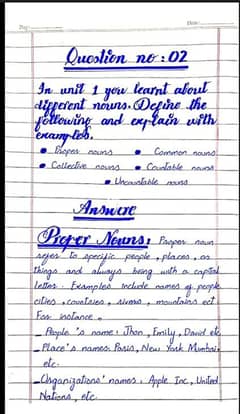 Date:
Question no : 02
In unit 1 you learnt about
different nouns. Define the
following and explain with
examples.
• Proper nouns • Common nouns
• Collective nouns • Countable nouns
• Uncountable nouns
Answere
Proper Nouns: Proper noun
refer to specific people, places, or
things and always being with a capital
letter. Examples include names of people,
cities, countries, rivers, mountains ect.
For instance.
_ People's name: Jhon, Emily, David etc
_ Place's names: Paris, New York Mumbai,
etc.
_ Organizations' names: Apple Inc, United
Nations, etc.